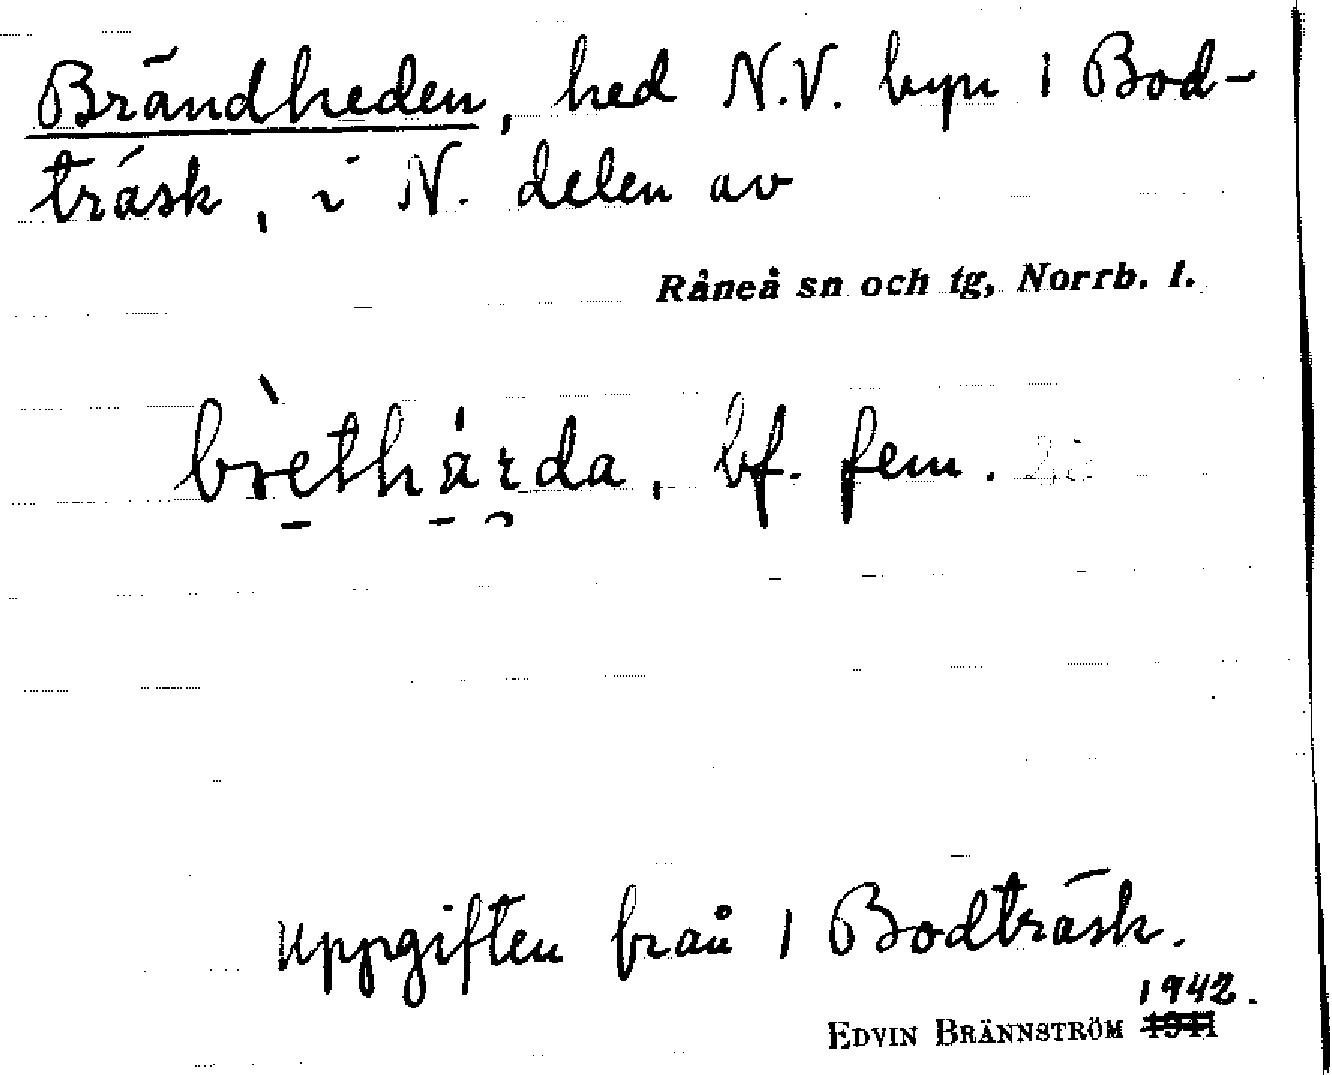 Brändheden, hed N.V. byn 1 Bod-
träsk, i N. delen av
Råneå sn och tg, Norrb. l.
brèthárda, bf. fem.
Uppgiften från 1 Bodträsk.
1942.
EDVIN BRÄNNSTRÖM 1941